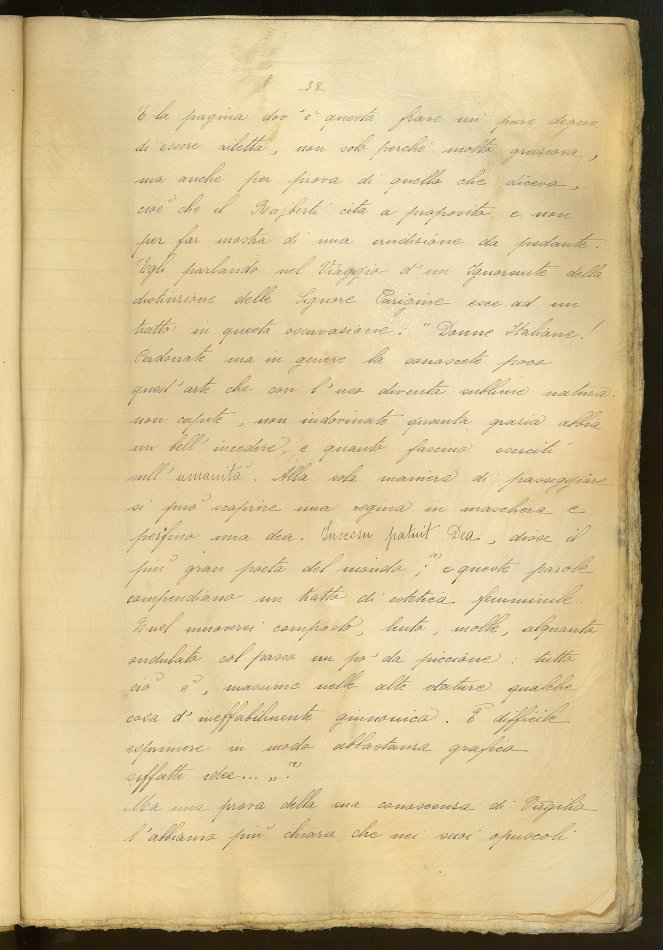 -38-
E la pagina dov'è questa frase mi pare degna
di essere riletta, non solo perchè molto graziosa,
ma anche per prova di quello che diceva,
cioè che il Rajberti cita a proposito e non
per far mostra di una erudizione da pedante.
Egli parlando nel Viaggio d'un Ignorante della
distinzione delle Signore Parigine esce ad un
tratto in questa osservazione: "Donne Italiane!
Perdonate ma in genere la conoscete poco
quest'arte che con l'uso diventa sublime natura:
non capite, non indovinate quanta grazia abbia
un bell'incedere, e quanto fascino eserciti
sull'umanità. Alla sola maniera di passeggiare
si può scoprire una regina in maschera e
perfino una dea. Incessu patuit Dea, disse il
più gran poeta del mondo; (1) e queste parole
compendiano un tratto di estetica femminile.
Quel muoversi composto, lento, molle, alquanto
ondulato col passo un po' da piccione: tutto
ciò è, massime nelle alte stature, qualche
cosa d'ineffabilmente giunonica. È difficile
esprimere in modo abbastanza grafico
siffatte idee... „
Ma una prova della sua conoscenza di Virgilio
l'abbiamo più chiara che nei suoi opuscoli